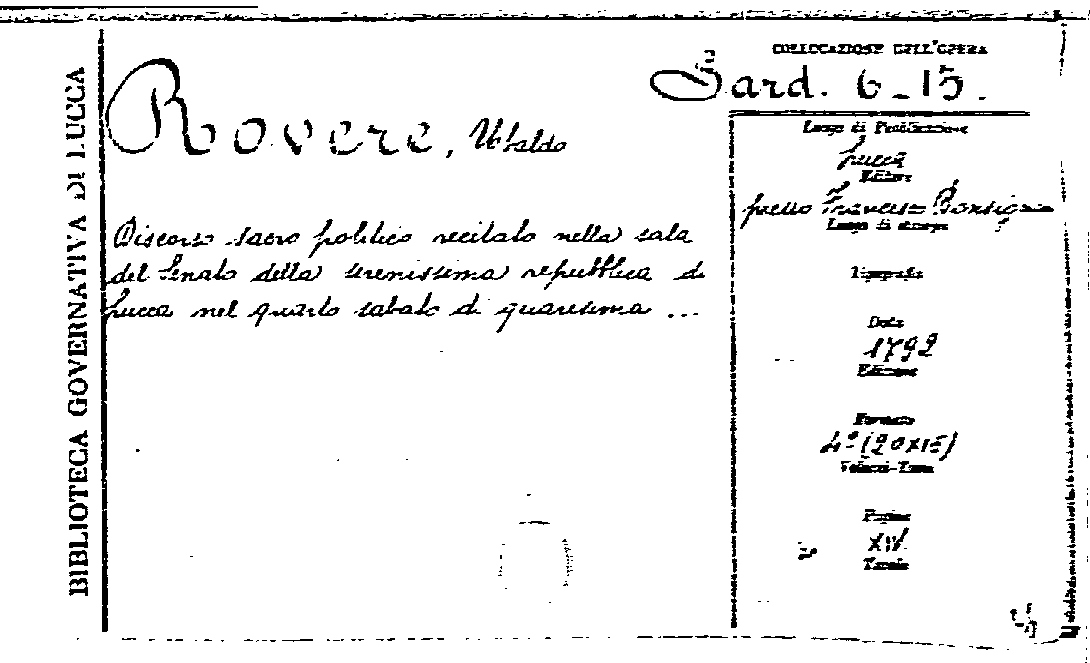 BIBLIOTECA GOVERNATIVA DI LUCCA
COLLOCAZIONE DELL'OPERA
Bard. 6-15.
Rovere, Ubaldo
Discorso sacro politico recitato nella sala
del Senato della serenissima repubblica di
Lucca nel quarto sabato di quaresima ...
Luogo di Pubblicazione
Lucca
Editore
presso Francesco Bonsignori
Luogo di stampa
Tipografia
Data
1792
Edizione
Formato
4° (20x15)
Volumi-Tomi
Pagine
XIV
Tavole